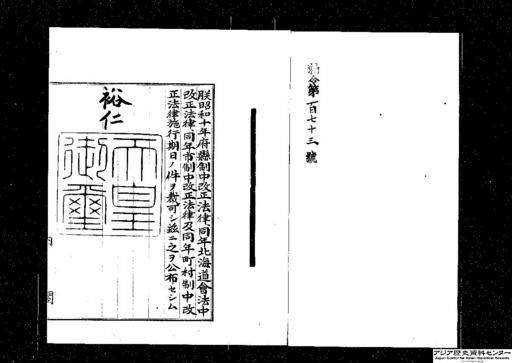 勅令第二百七十三號
朕昭和十年府縣制中改正法律、同年北海道會法中
改正法律、同年市制中改正法律及同年町村制中改
正法律施行期日ノ件ヲ裁可シ茲ニ之ヲ公布セシム
裕仁
天皇
御璽
内閣
アジア歴史資料センター
Japan Center for Asian Historical Records